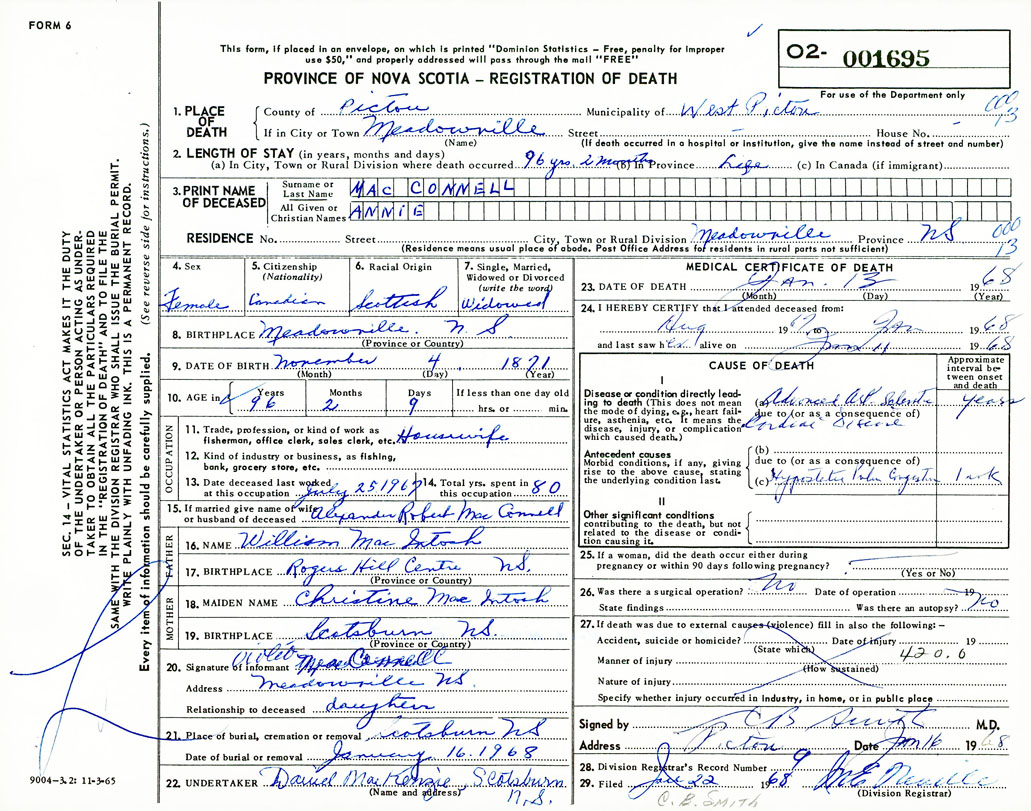 FORM 6
This form, if placed in an envelope, on which is printed "Dominion Statistics – Free, penalty for improper
use $50," and properly addressed will pass through the mail "FREE"
PROVINCE OF NOVA SCOTIA – REGISTRATION OF DEATH
02- 001695
For use of the Department only
1. PLACE OF DEATH
County of Pictou Municipality of West Pictou 000
If in City or Town Meadowville Street – House No. – 13
(Name) (If death occurred in a hospital or institution, give the name instead of street and number)
2. LENGTH OF STAY (in years, months and days)
(a) In City, Town or Rural Division where death occurred 96 yrs. 2 months (b) In Province Life (c) In Canada (if immigrant)
3. PRINT NAME OF DECEASED
Surname or Last Name MAC CONNELL
All Given or Christian Names ANNIE
RESIDENCE No. Street City, Town or Rural Division Meadowville Province NS 000 13
(Residence means usual place of abode. Post Office Address for residents in rural parts not sufficient)
4. Sex Female
5. Citizenship (Nationality) Canadian
6. Racial Origin Scottish
7. Single, Married, Widowed or Divorced (write the word) Widowed
8. BIRTHPLACE Meadowville. N. S
(Province or Country)
9. DATE OF BIRTH November 4 1871
(Month) (Day) (Year)
10. AGE in Years 96 Months 2 Days 9 If less than one day old hrs. or min.
OCCUPATION
11. Trade, profession, or kind of work as fisherman, office clerk, sales clerk, etc. Housewife
12. Kind of industry or business, as fishing, bank, grocery store, etc.
13. Date deceased last worked at this occupation July 25 1967
14. Total yrs. spent in 80
15. If married give name of wife or husband of deceased Alexander Robert Mac Connell
FATHER
16. NAME William Mac Intosh
17. BIRTHPLACE Rogers Hill Centre NS.
(Province or Country)
MOTHER
18. MAIDEN NAME Christine Mac Intosh
19. BIRTHPLACE Scotsburn NS.
(Province or Country)
20. Signature of informant Violet MacConnell
Address Meadowville NS.
Relationship to deceased daughter
21. Place of burial, cremation or removal Scotsburn NS
Date of burial or removal January 16. 1968
22. UNDERTAKER Daniel MacKenzie, Scotsburn N.S.
(Name and address)
MEDICAL CERTIFICATE OF DEATH
23. DATE OF DEATH Jan. 13 1968
(Month) (Day) (Year)
24. I HEREBY CERTIFY that I attended deceased from:
Aug 1967 to Jan 1968
and last saw her alive on Jan 11 1968
CAUSE OF DEATH
Approximate interval between onset and death
I
Disease or condition directly leading to death (This does not mean the mode of dying, e.g., heart failure, asthenia, etc. It means the disease, injury, or complication which caused death.)
(a) Advanced years
due to (or as a consequence of)
Cardiac Disease
Antecedent causes
Morbid conditions, if any, giving rise to the above cause, stating the underlying condition last.
(b)
due to (or as a consequence of)
(c) Hypostatic 1 wk
II
Other significant conditions
contributing to the death, but not related to the disease or condition causing it.
25. If a woman, did the death occur either during
pregnancy or within 90 days following pregnancy?
(Yes or No)
26. Was there a surgical operation? No Date of operation 19
State findings Was there an autopsy? No
27. If death was due to external causes (violence) fill in also the following: –
Accident, suicide or homicide? Date of injury 19
(State which) 420.0
Manner of injury
(How sustained)
Nature of injury
Specify whether injury occurred in industry, in home, or in public place
Signed by C B Smith M.D.
Address Pictou Date Jan 16 1968
28. Division Registrar's Record Number 9
29. Filed Jan 22 1968
(Division Registrar)
C. B. SMITH
SEC. 14 – VITAL STATISTICS ACT MAKES IT THE DUTY
OF THE UNDERTAKER OR PERSON ACTING AS UNDER-
TAKER TO OBTAIN ALL THE PARTICULARS REQUIRED
IN THE "REGISTRATION OF DEATH" AND TO FILE THE
SAME WITH THE DIVISION REGISTRAR WHO SHALL ISSUE THE BURIAL PERMIT.
WRITE PLAINLY WITH UNFADING INK. THIS IS A PERMANENT RECORD.
Every item of information should be carefully supplied. (See reverse side for instructions.)
9004-3.2: 11-3-65